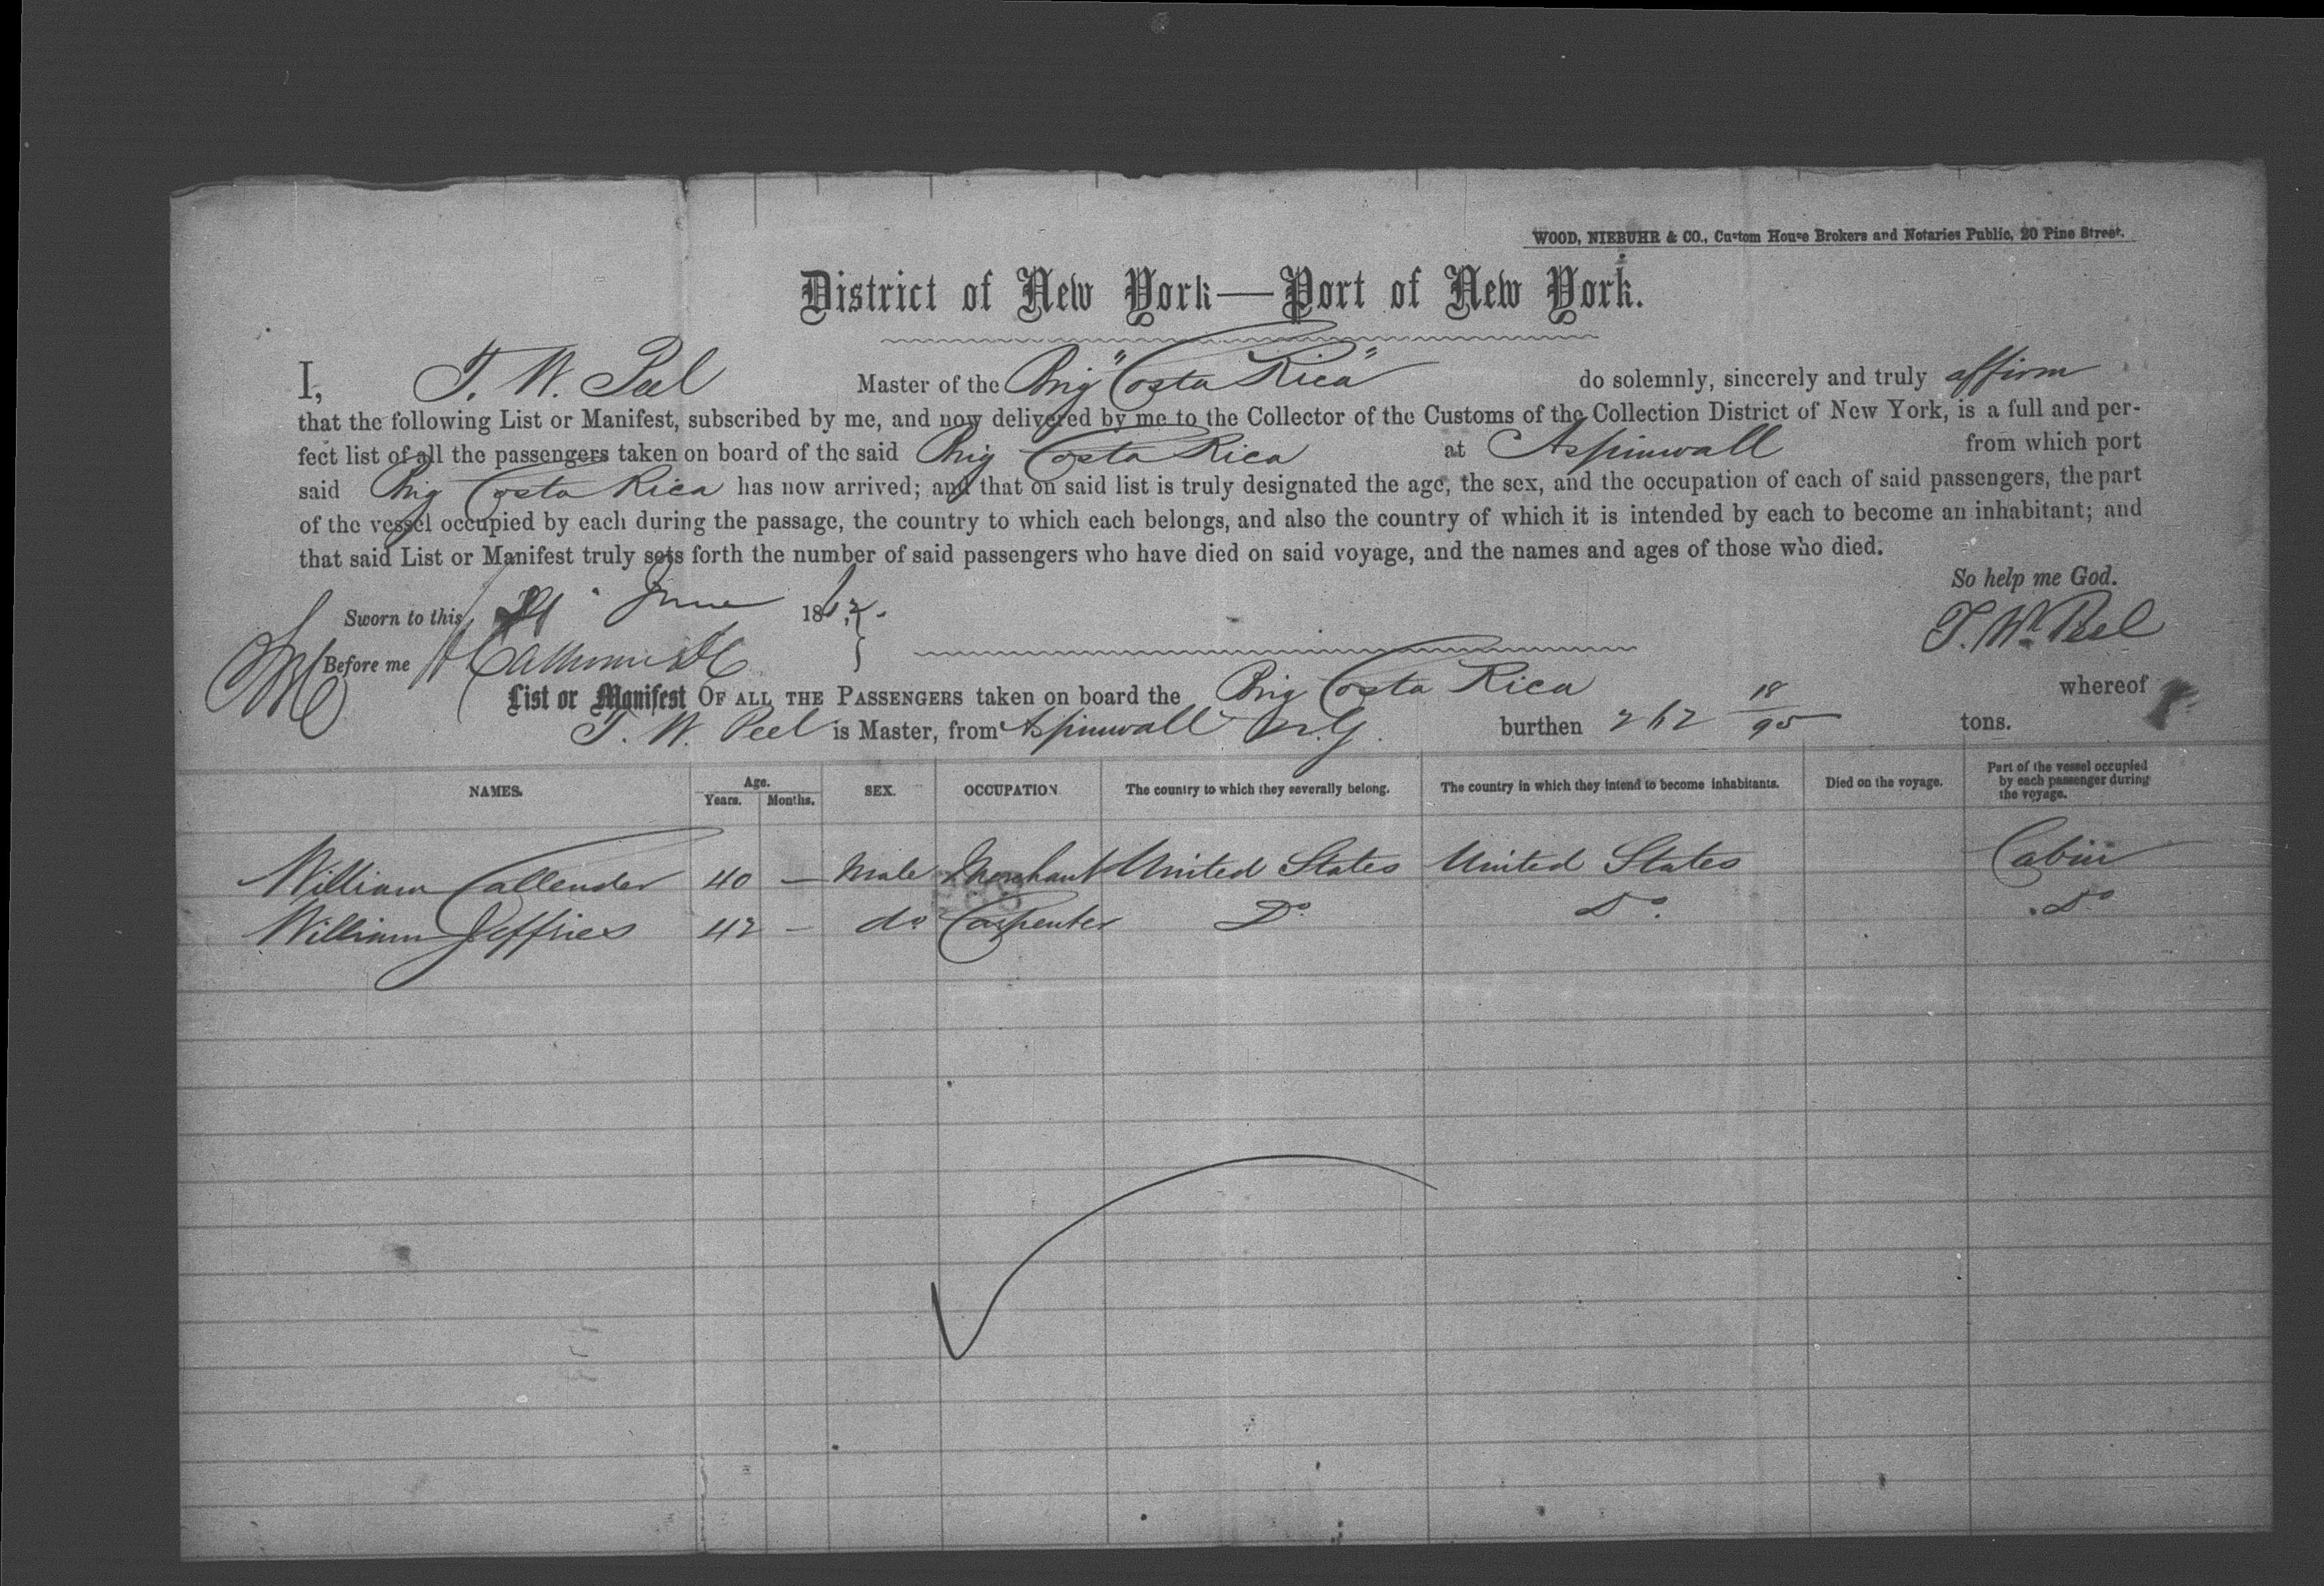 WOOD, NIEBUHR & CO., Custom House Brokers and Notaries Public, 20 Pine Street.
District of New York—Port of New York.
I, T. W. Peel Master of the Brig "Costa Rica" do solemnly, sincerely and truly affirm
that the following List or Manifest, subscribed by me, and now delivered by me to the Collector of the Customs of the Collection District of New York, is a full and per-
fect list of all the passengers taken on board of the said Brig Costa Rica at Aspinwall from which port
said Brig Costa Rica has now arrived; and that on said list is truly designated the age, the sex, and the occupation of each of said passengers, the part
of the vessel occupied by each during the passage, the country to which each belongs, and also the country of which it is intended by each to become an inhabitant; and
that said List or Manifest truly sets forth the number of said passengers who have died on said voyage, and the names and ages of those who died.
So help me God.
Sworn to this June 18
T. Wm Peel
Before me
List or Manifest OF ALL THE PASSENGERS taken on board the Brig Costa Rica whereof
T. W. Peel is Master, from Aspinwall N.G. burthen 262 18/95 tons.
NAMES. Age. Years. Months. SEX. OCCUPATION The country to which they severally belong. The country in which they intend to become inhabitants. Died on the voyage. Part of the vessel occupied by each passenger during the voyage.
William Callender 40 — Male Merchant United States United States Cabin
William Jeffries 42 — do Carpenter Do Do. Do